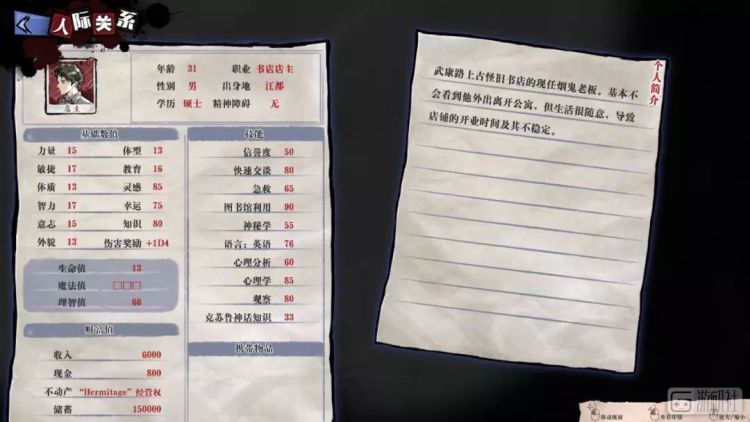 人际关系
年龄 31 职业 书店店主
性别 男 出身地 江都
学历 硕士 精神障碍 无
店主
基础数值
力量 15 体型 13
敏捷 17 教育 16
体质 13 灵感 85
智力 17 幸运 75
意志 15 知识 80
外貌 13 伤害奖励 +1D4
生命值 13
魔法值 □□□
理智值 66
财富值
收入 6000
现金 800
不动产 “Hermitage” 经营权
储蓄 150000
技能
信誉度 50
快速交谈 80
急救 65
图书馆利用 90
神秘学 55
语言：英语 76
心理分析 60
心理学 85
观察 80
克苏鲁神话知识 33
携带物品
个人简介
武康路上古怪旧书店的现任烟鬼老板。基本不
会看到他外出离开公寓，但生活很随意，导致
店铺的开业时间及其不稳定。
游研社
移动视窗 查看详情 放大/缩小